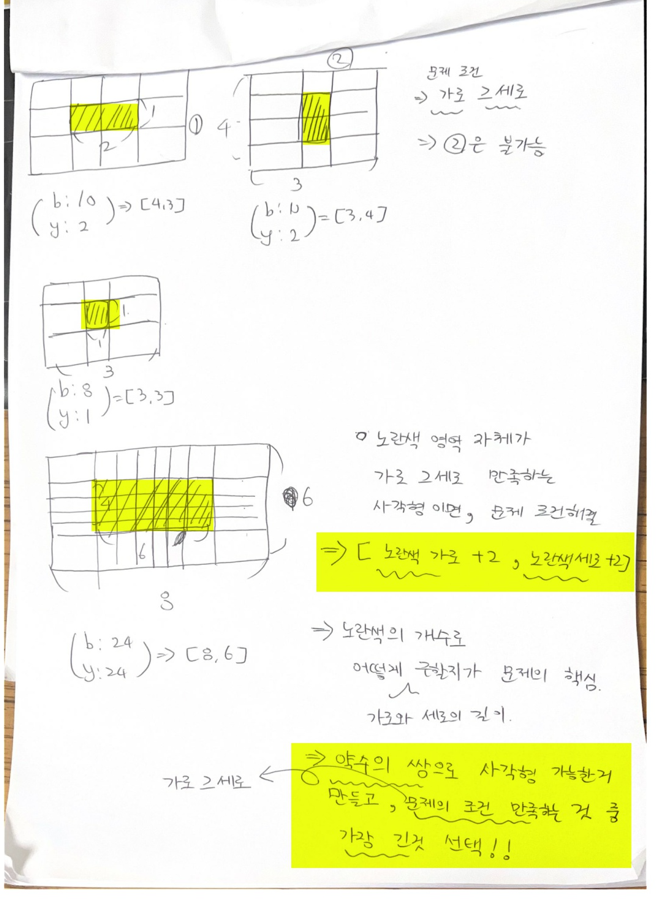 ②
문제 조건
⇒ 가로 ≥ 세로
⇒ ②은 불가능
1
①
2
4
3
(b: 10
y: 2) ⇒ [4,3]
y: 2) = [3,4]
1
1
3
(b: 8
y: 1) = [3,3]
4
6
6
8
(b: 24
y: 24) ⇒ [8,6]
○ 노란색 영역 자체가
가로 ≥ 세로 만족하는
사각형이면, 문제 조건해결
⇒ [노란색 가로 +2, 노란색세로+2]
⇒ 노란색의 개수로
어떻게 구할지가 문제의 핵심.
가로와 세로의 길이.
⇒ 약수의 쌍으로 사각형 가능한거
가로 ≥ 세로
만들고, 문제의 조건 만족하는 것 중
가장 긴것 선택!!